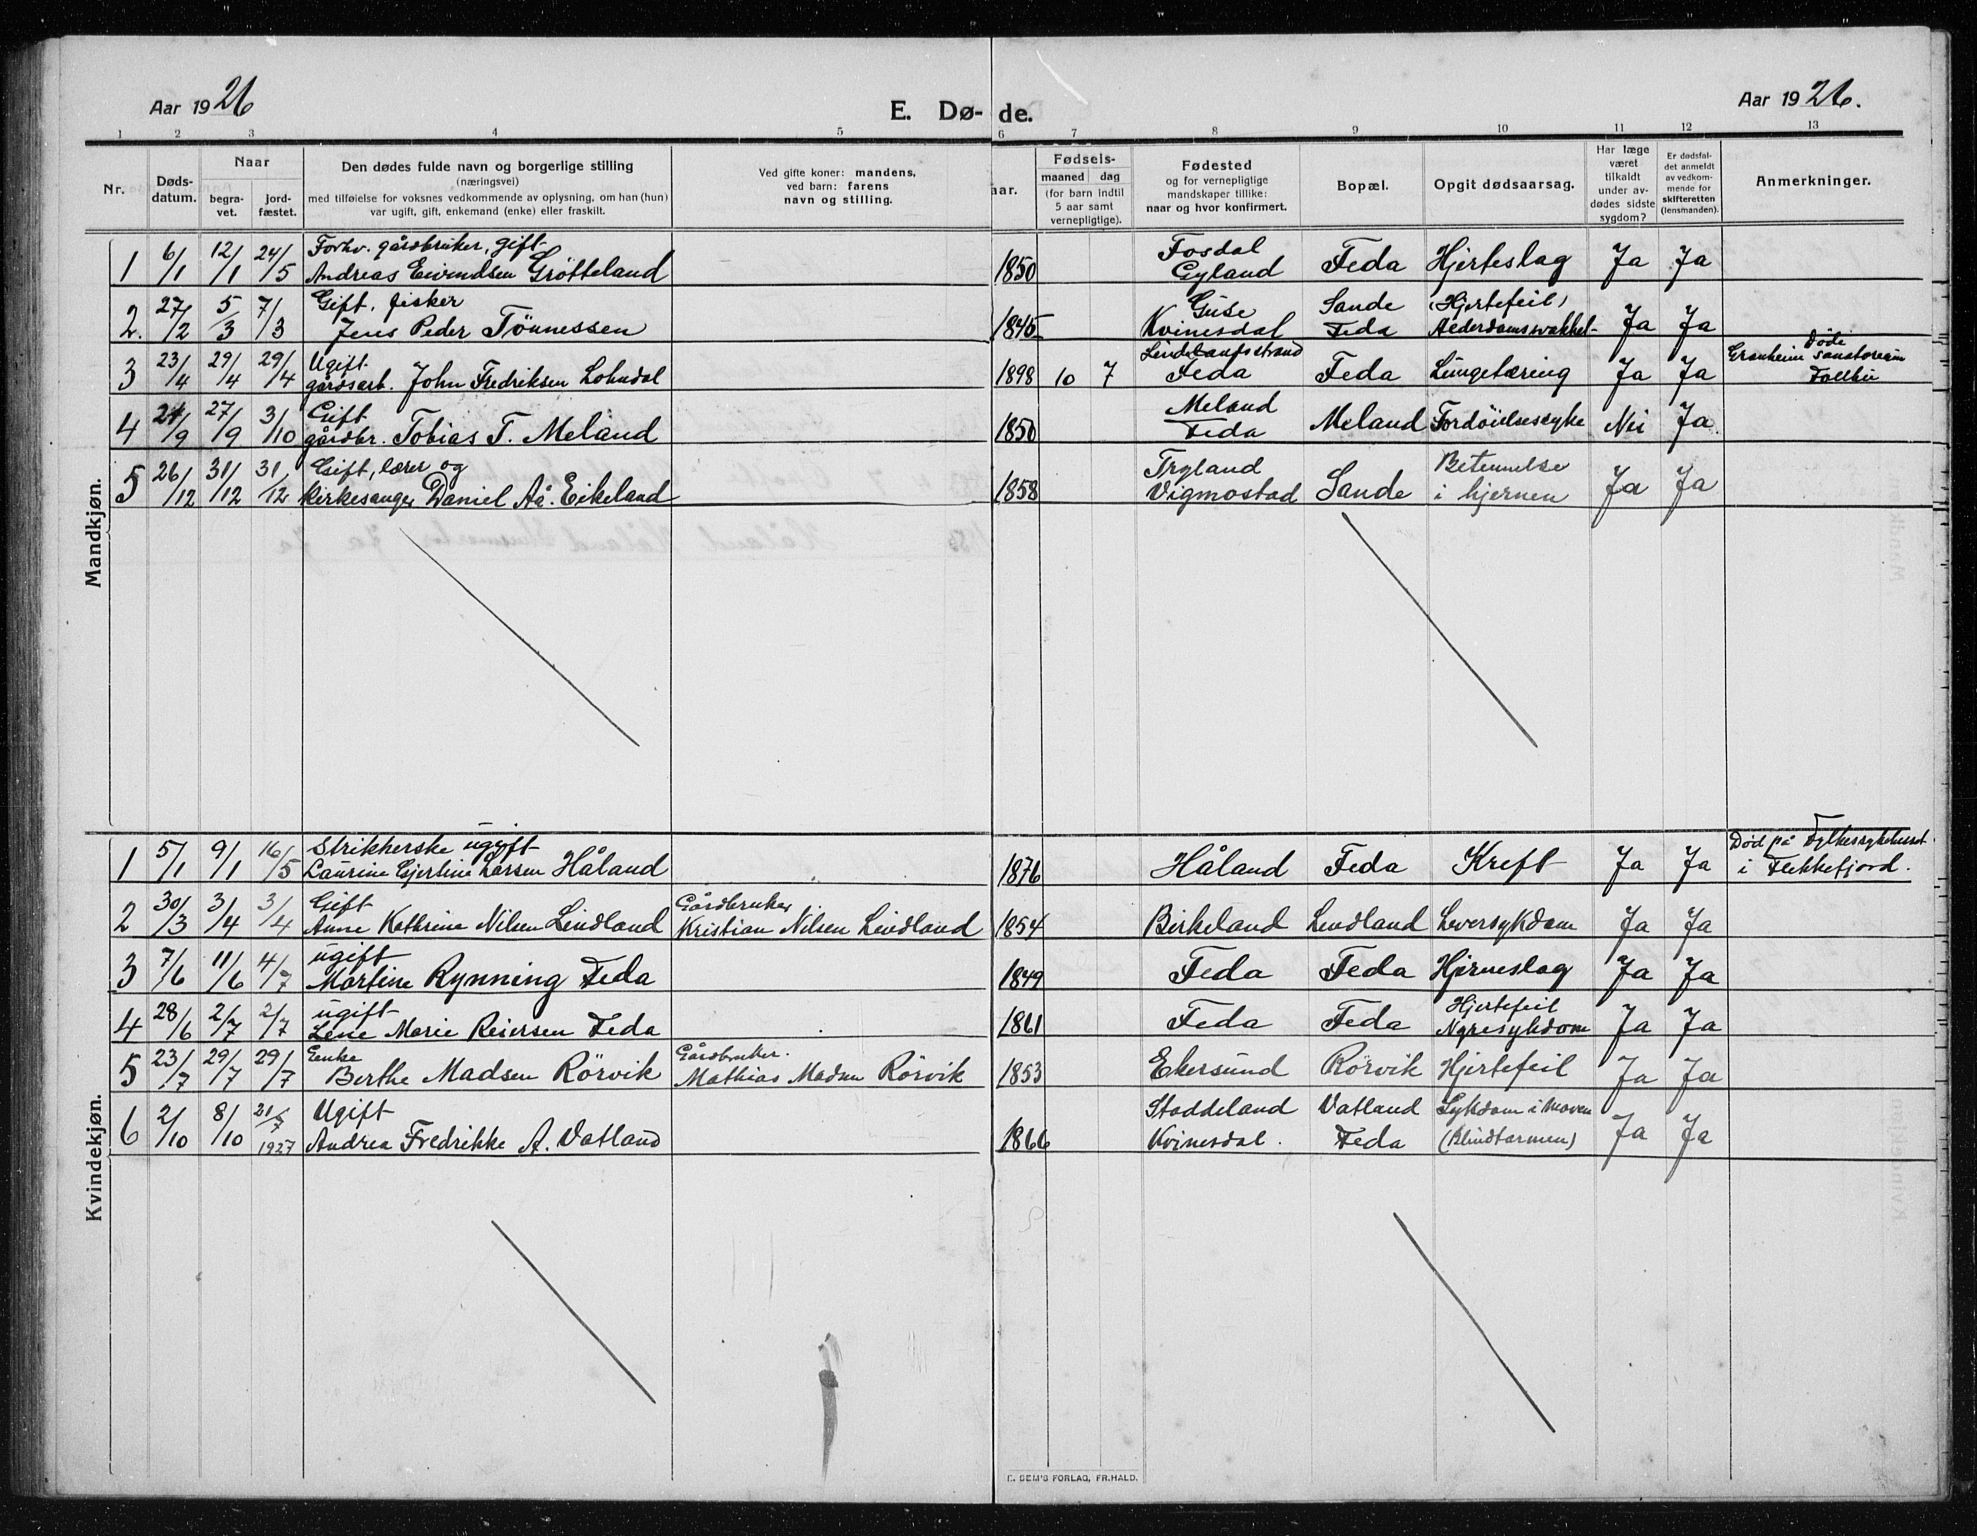 Aar 1926
E. Dø- de.
Aar 1926.
1 2 3 4 5 6 7 8 9 10 11 12 13
Nr.
Døds-
datum.
Naar
begra-
vet.
jord-
fæstet.
Den dødes fulde navn og borgerlige stilling
(næringsvei)
med tilføielse for voksnes vedkommende av oplysning, om han (hun)
var ugift, gift, enkemand (enke) eller fraskilt.
Ved gifte koner: mandens,
ved barn: farens
navn og stilling.
aar.
Fødsels-
maaned dag
(for barn indtil
5 aar samt
vernepligtige).
Fødested
og for vernepligtige
mandskaper tillike:
naar og hvor konfirmert.
Bopæl.
Opgit dødsaarsag.
Har læge
været
tilkaldt
under av-
dødes sidste
sygdom?
Er dødsfal-
det anmeldt
av vedkom-
mende for
skifteretten
(lensmanden).
Anmerkninger.
Mandkjøn.
Forhv. gårdbruker, gift Fosdal
1 6/1 12/1 24/5 Andreas Eivindsen Grøtteland 1850 Gyland Feda Hjerteslag Ja Ja
Gift, fisker Guse Sande (Hjertefeil)
2. 27/2 5/3 7/3 Jens Peder Tönnessen 1845 Kvinesdal Feda Alderdomssvakkel- Ja Ja
Ugift. Lindelandsstrand Døde
3 23/4 29/4 29/4 gårdsarb. John Fredriksen Lohndal 1898 10 7 Feda Feda Lungetæring Ja Ja Granheim sanatorium
Follbu
Gift Meland
4 21/9 27/9 3/10 gårdbr. Tobias T. Meland 1850 Feda Meland Fordöielsessyke Nei Ja.
Gift, lærer og Tryland Betennelse
5 26/12 31/12 31/12 kirkesanger Daniel Aå. Eikeland 1858 Vigmostad Sande i hjernen Ja Ja
Kvindekjøn.
Strikkerske ugift Død på Fylkessykehuset
1 5/1 9/1 16/5 Laurine Gjertine Larsen Håland 1876 Håland Feda Kreft Ja Ja i Flekkefjord.
Gift Gårdbruker
2 30/3 3/4 3/4 Anne Kathrine Nilsen Lindland Kristian Nilsen Lindland 1854 Birkeland Lindland Leversykdom Ja Ja
ugift
3 7/6 11/6 4/7 Martine Rynning Feda 1849 Feda Feda Hjerneslag Ja Ja
ugift Hjertefeil
4 28/6 2/7 2/7 Lene Marie Reiersen Feda 1861 Feda Feda Nyresykdom Ja Ja
Enke Gårdbruker.
5 23/7 29/7 29/7 Berthe Madsen Rörvik Mathias Madsen Rörvik 1853 Ekersund Rörvik Hjertefeil Ja Ja
Ugift Staddeland Vatland Sykdom i maven
6 2/10 8/10 21/7 1927 Andrea Fredrikke A. Vatland 1866 Kvinesdal. Feda (Blindtarmen) Ja Ja
E. SEM'S FORLAG, FR.HALD.